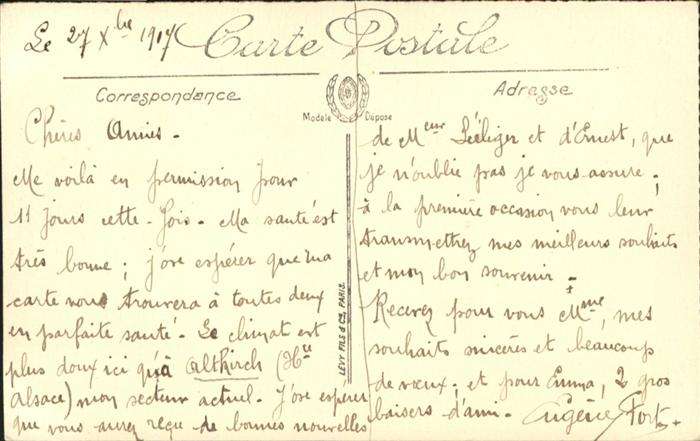 Le 27 Xbre 1917
Carte Postale
Correspondance
Chères Amies -
Me voilà en permission pour
11 jours cette - fois - Ma santé est
très bonne ; j'ose espérer que ma
carte vous trouvera à toutes deux
en parfaite santé - Le climat est
plus doux ici qu'à Altkirch (Hte
Alsace) mon secteur actuel - J'ose espérer
que vous aurez reçu de bonnes nouvelles
Modèle Déposé
LÉVY FILS & Cie, PARIS
Adresse
de Meur et d'Ernest, que
je n'oublie pas je vous assure -
à la première occasion vous leur
transmettrez mes meilleurs souhaits
et mon bon souvenir -
Recevez pour vous Mme, mes
souhaits sincères et beaucoup
de voeux ; et pour Emma, 2 gros
baisers d'ami - Eugène Fort